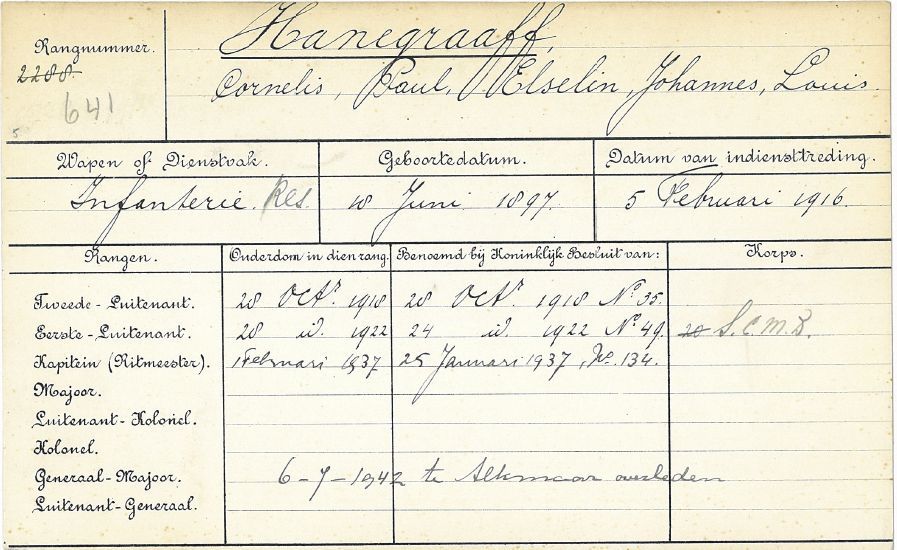 Rangnummer.
2288.
641
5
Hanegraaff,
Cornelis, Paul, Elselin, Johannes, Louis.
Wapen of Dienstvak. Geboortedatum. Datum van indiensttreding.
Infanterie. Res. 18 Juni 1897. 5 Februari 1916.
Rangen. Ouderdom in dien rang. Benoemd bij Koninklijk Besluit van: Korps.
Tweede-Luitenant. 28 Octr 1918 28 Octr 1918 No 35.
Eerste-Luitenant. 28 id. 1922 24 id 1922 No 49. S.C.M.B.
Kapitein (Ritmeester). 1 Februari 1937 25 Januari 1937, No. 134.
Majoor.
Luitenant-Kolonel.
Kolonel.
Generaal-Majoor. 6-7-1942 te Alkmaar overleden
Luitenant-Generaal.